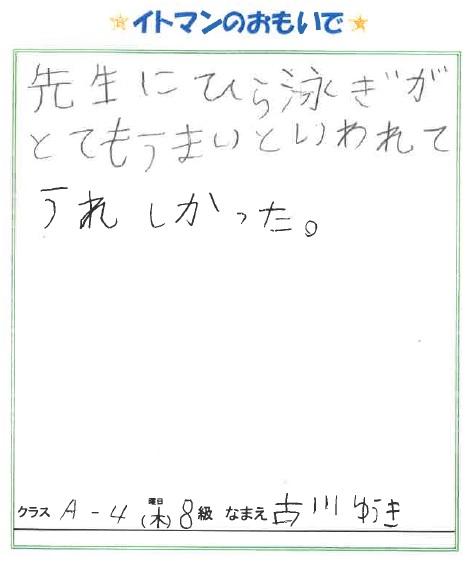 イトマンのおもいで
先生にひら泳ぎが
とてもうまいといわれて
うれしかった。
クラス A-4 曜日(木) 8級 なまえ 古川ゆうき